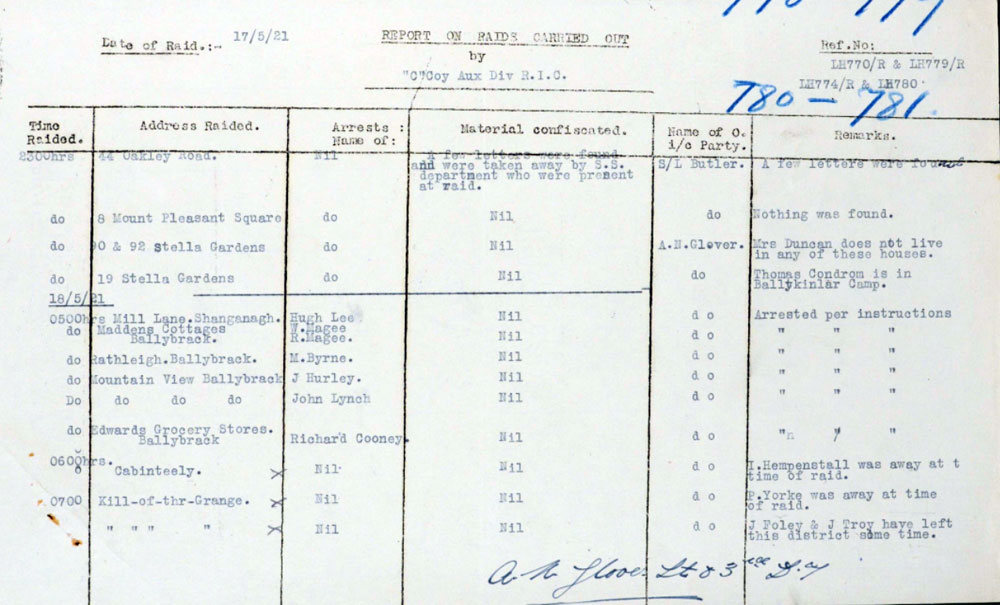 770 - 779
Date of Raid.:- 17/5/21 REPORT ON RAIDS CARRIED OUT Ref.No:
by LH770/R & LH779/R
"C"Coy Aux Div R.I.C. LH774/R & LH780
780 - 781.
Time Raided. Address Raided. Arrests : Name of: Material confiscated. Name of O. i/c Party. Remarks.
2300hrs 44 Oakley Road. Nil A few letters were found S/L Butler. A few letters were found
and were taken away by S.S.
department who were present
at raid.
do 8 Mount Pleasant Square do Nil do Nothing was found.
do 90 & 92 Stella Gardens do Nil A.N.Glover. Mrs Duncan does not live
in any of these houses.
do 19 Stella Gardens do Nil do Thomas Condrom is in
Ballykinlar Camp.
18/5/21
0500hrs Mill Lane.Shanganagh. Hugh Lee Nil d o Arrested per instructions
do Maddens Cottages W.Magee Nil d o " " "
Ballybrack. R.Magee.
do Rathleigh.Ballybrack. M.Byrne. Nil d o " " "
do Mountain View Ballybrack J Hurley. Nil d o " " "
Do do do do John Lynch Nil d o " " "
do Edwards Grocery Stores. Richard Cooney. Nil d o "n " "
Ballybrack
0600hrs.
Cabinteely. X Nil. Nil d o I.Hempenstall was away at t
time of raid.
0700 Kill-of-thr-Grange. X Nil Nil d o P.Yorke was away at time
of raid.
" " " " X Nil Nil d o J Foley & J Troy have left
this district some time.
A N Glover Lt